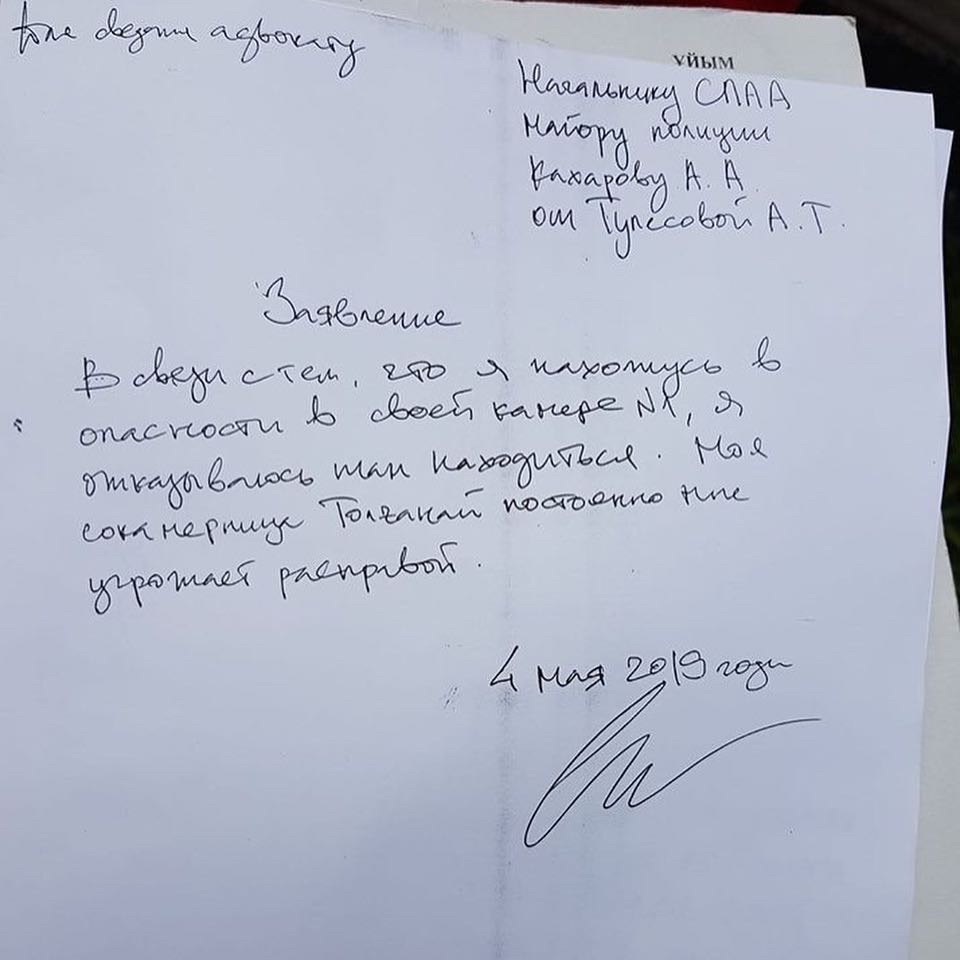 адвокату
ҰЙЫМ
Начальнику СПАА
майору полиции
Кахарову А. А.
от Тулесовой А.Т.
Заявление
В связи с тем, что я нахожусь в
опасности в своей камере №1, я
отказываюсь там находиться. Моя
сокамерница Толганай постоянно мне
угрожает расправой.
4 мая 2019 года